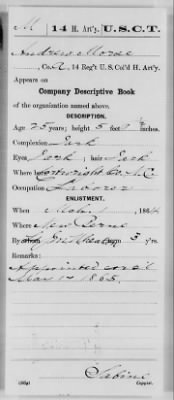 M 14 H. Art'y. U.S.C.T.
Andrew Morse
, Co. A, 14 Reg't U.S. Col'd H. Art'y.
Appears on
Company Descriptive Book
of the organization named above.
DESCRIPTION.
Age 25 years; height 5 feet inches.
Complexion Dark
Eyes Dark, hair Dark
Where born N.C.
Occupation Laborer
ENLISTMENT.
When Mch 1, 1864
Where New Berne
By whom ; term 3 y'rs.
Remarks:
Appointed Corp'l
Mar 1 1865.
Sabine
Copyist.